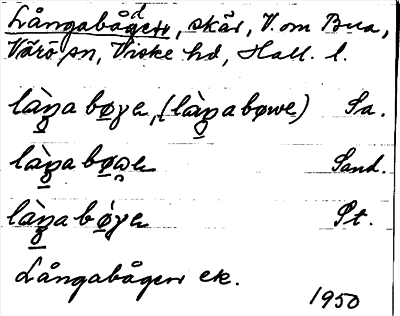 Långabådgen, skär, V. om Bua,
Värö sn, Viske hd, Hall. l.
làŋa bøɣe, (làŋa bøwe) Sa.
làŋa bøwe Sand.
làŋa bøɣe Pt.
Långabågen ek.
1950